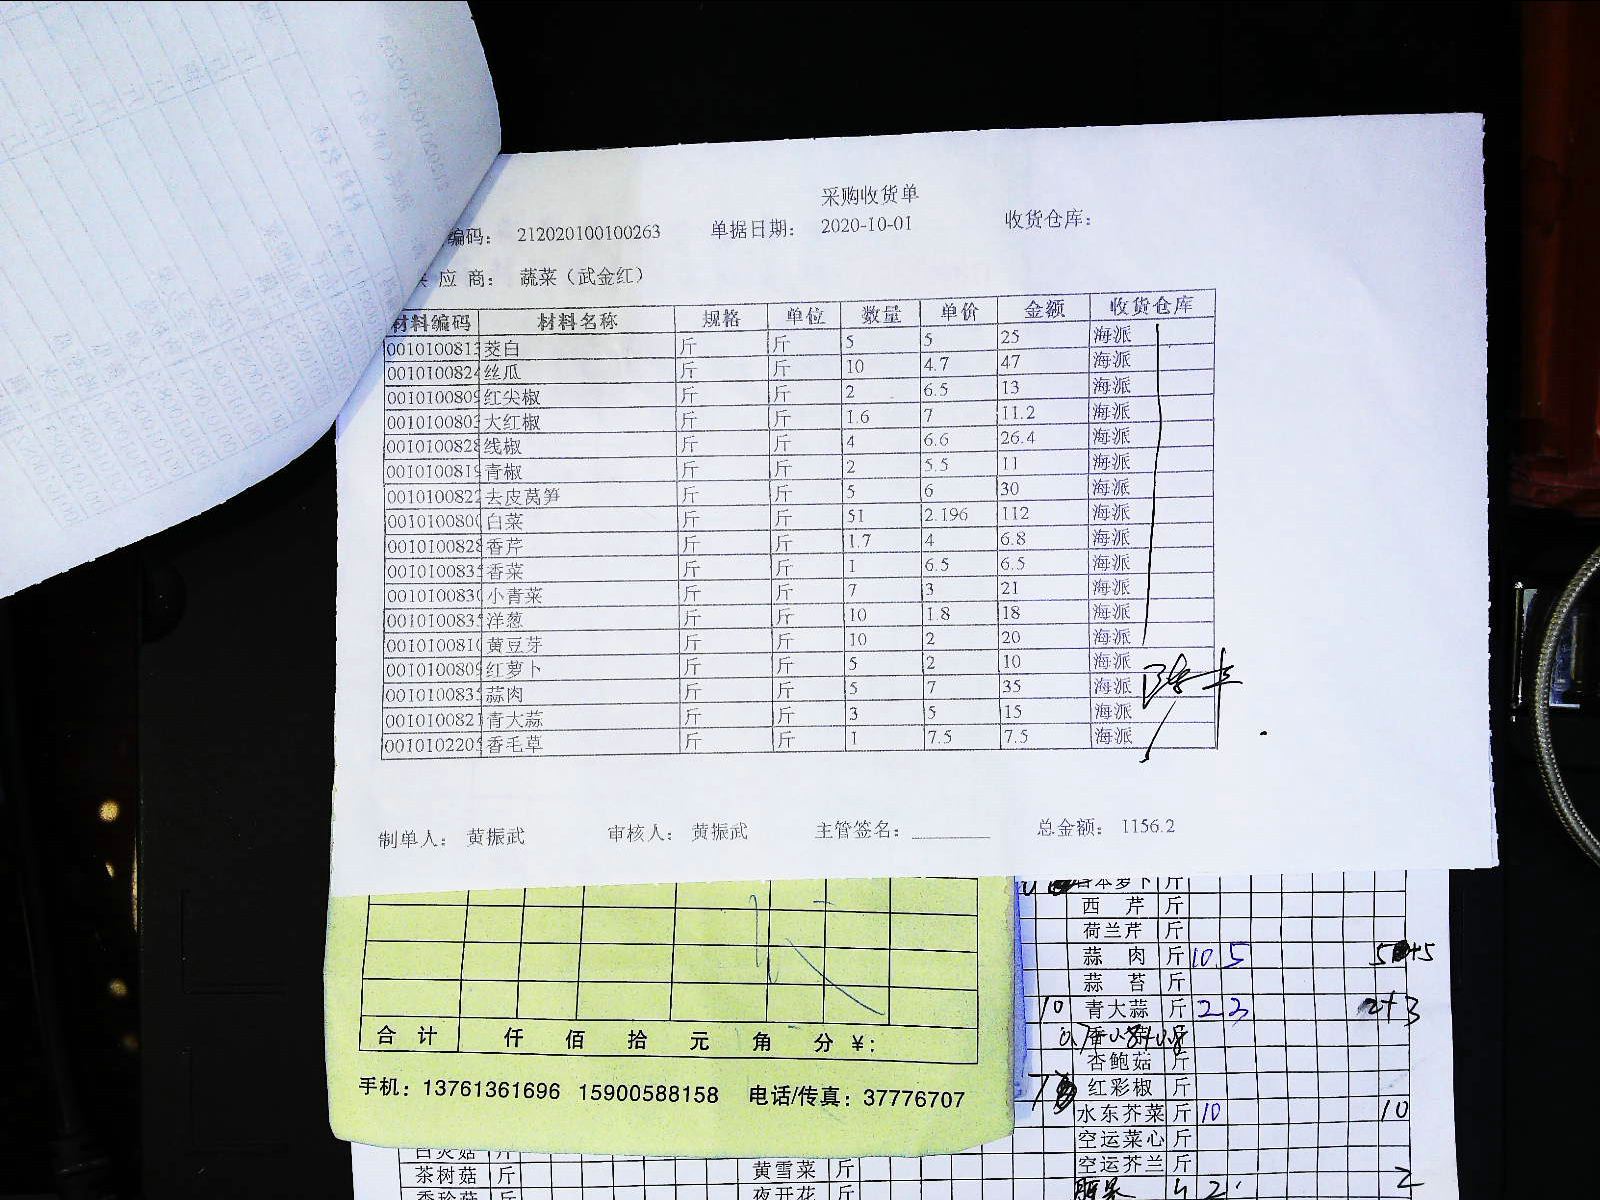 采购收货单
编码： 212020100100263 单据日期： 2020-10-01 收货仓库：
应 商： 蔬菜（武金红）
材料编码 材料名称 规格 单位 数量 单价 金额 收货仓库
001010081 茭白 斤 斤 5 5 25 海派
001010082 丝瓜 斤 斤 10 4.7 47 海派
001010080 红尖椒 斤 斤 2 6.5 13 海派
001010080 大红椒 斤 斤 1.6 7 11.2 海派
001010082 线椒 斤 斤 4 6.6 26.4 海派
001010081 青椒 斤 斤 2 5.5 11 海派
001010082 去皮莴笋 斤 斤 5 6 30 海派
001010080 白菜 斤 斤 51 2.196 112 海派
001010082 香芹 斤 斤 1.7 4 6.8 海派
001010083 香菜 斤 斤 1 6.5 6.5 海派
001010083 小青菜 斤 斤 7 3 21 海派
001010083 洋葱 斤 斤 10 1.8 18 海派
001010081 黄豆芽 斤 斤 10 2 20 海派
001010080 红萝卜 斤 斤 5 2 10 海派
001010083 蒜肉 斤 斤 5 7 35 海派
001010082 青大蒜 斤 斤 3 5 15 海派
001010220 香毛草 斤 斤 1 7.5 7.5 海派
制单人： 黄振武 审核人： 黄振武 主管签名： 总金额： 1156.2
西 芹 斤
荷兰芹 斤
蒜 肉 斤 10 5
蒜 苔 斤
10 青大蒜 斤 2 3 2+3
杏鲍菇 斤
红彩椒 斤
水东芥菜 斤 10 10
空运菜心 斤
空运芥兰 斤
2
合 计 仟 佰 拾 元 角 分 ¥：
手机：13761361696 15900588158 电话/传真：37776707
茶树菇 斤 黄雪菜 斤
夜开花 斤